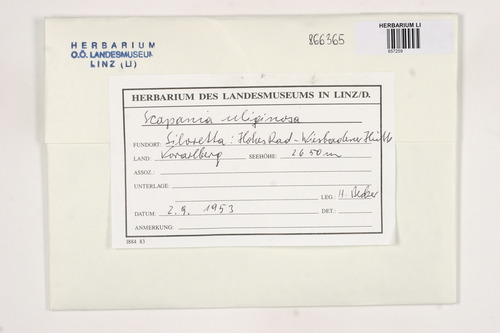 HERBARIUM
O.Ö. LANDESMUSEUM
LINZ (LI)
866365
HERBARIUM LI
HERBARIUM DES LANDESMUSEUMS IN LINZ/D.
Scapania uliginosa
FUNDORT: Silvretta: Hohes Rad - Wiesbadener Hütte
LAND: Vorarlberg SEEHÖHE: 2650 m
ASSOZ.:
UNTERLAGE:
LEG.: H.
DATUM: 2. 9. 1953 DET.:
ANMERKUNG:
I884 83